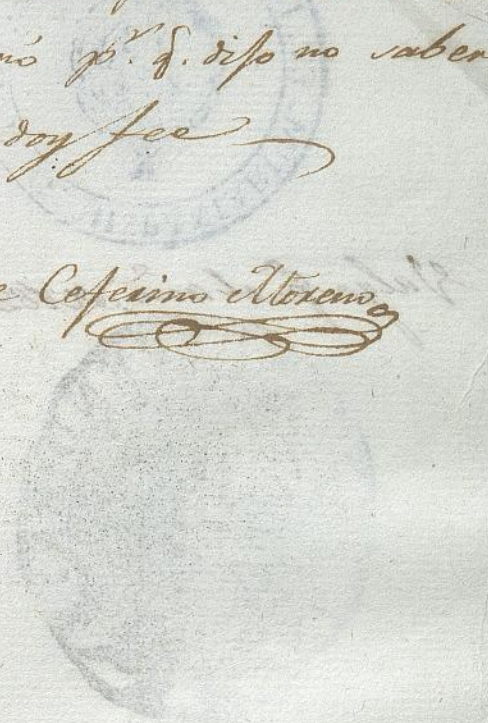 nó p.r q. dijo no saber
doy fee
e Ceferino Moreno